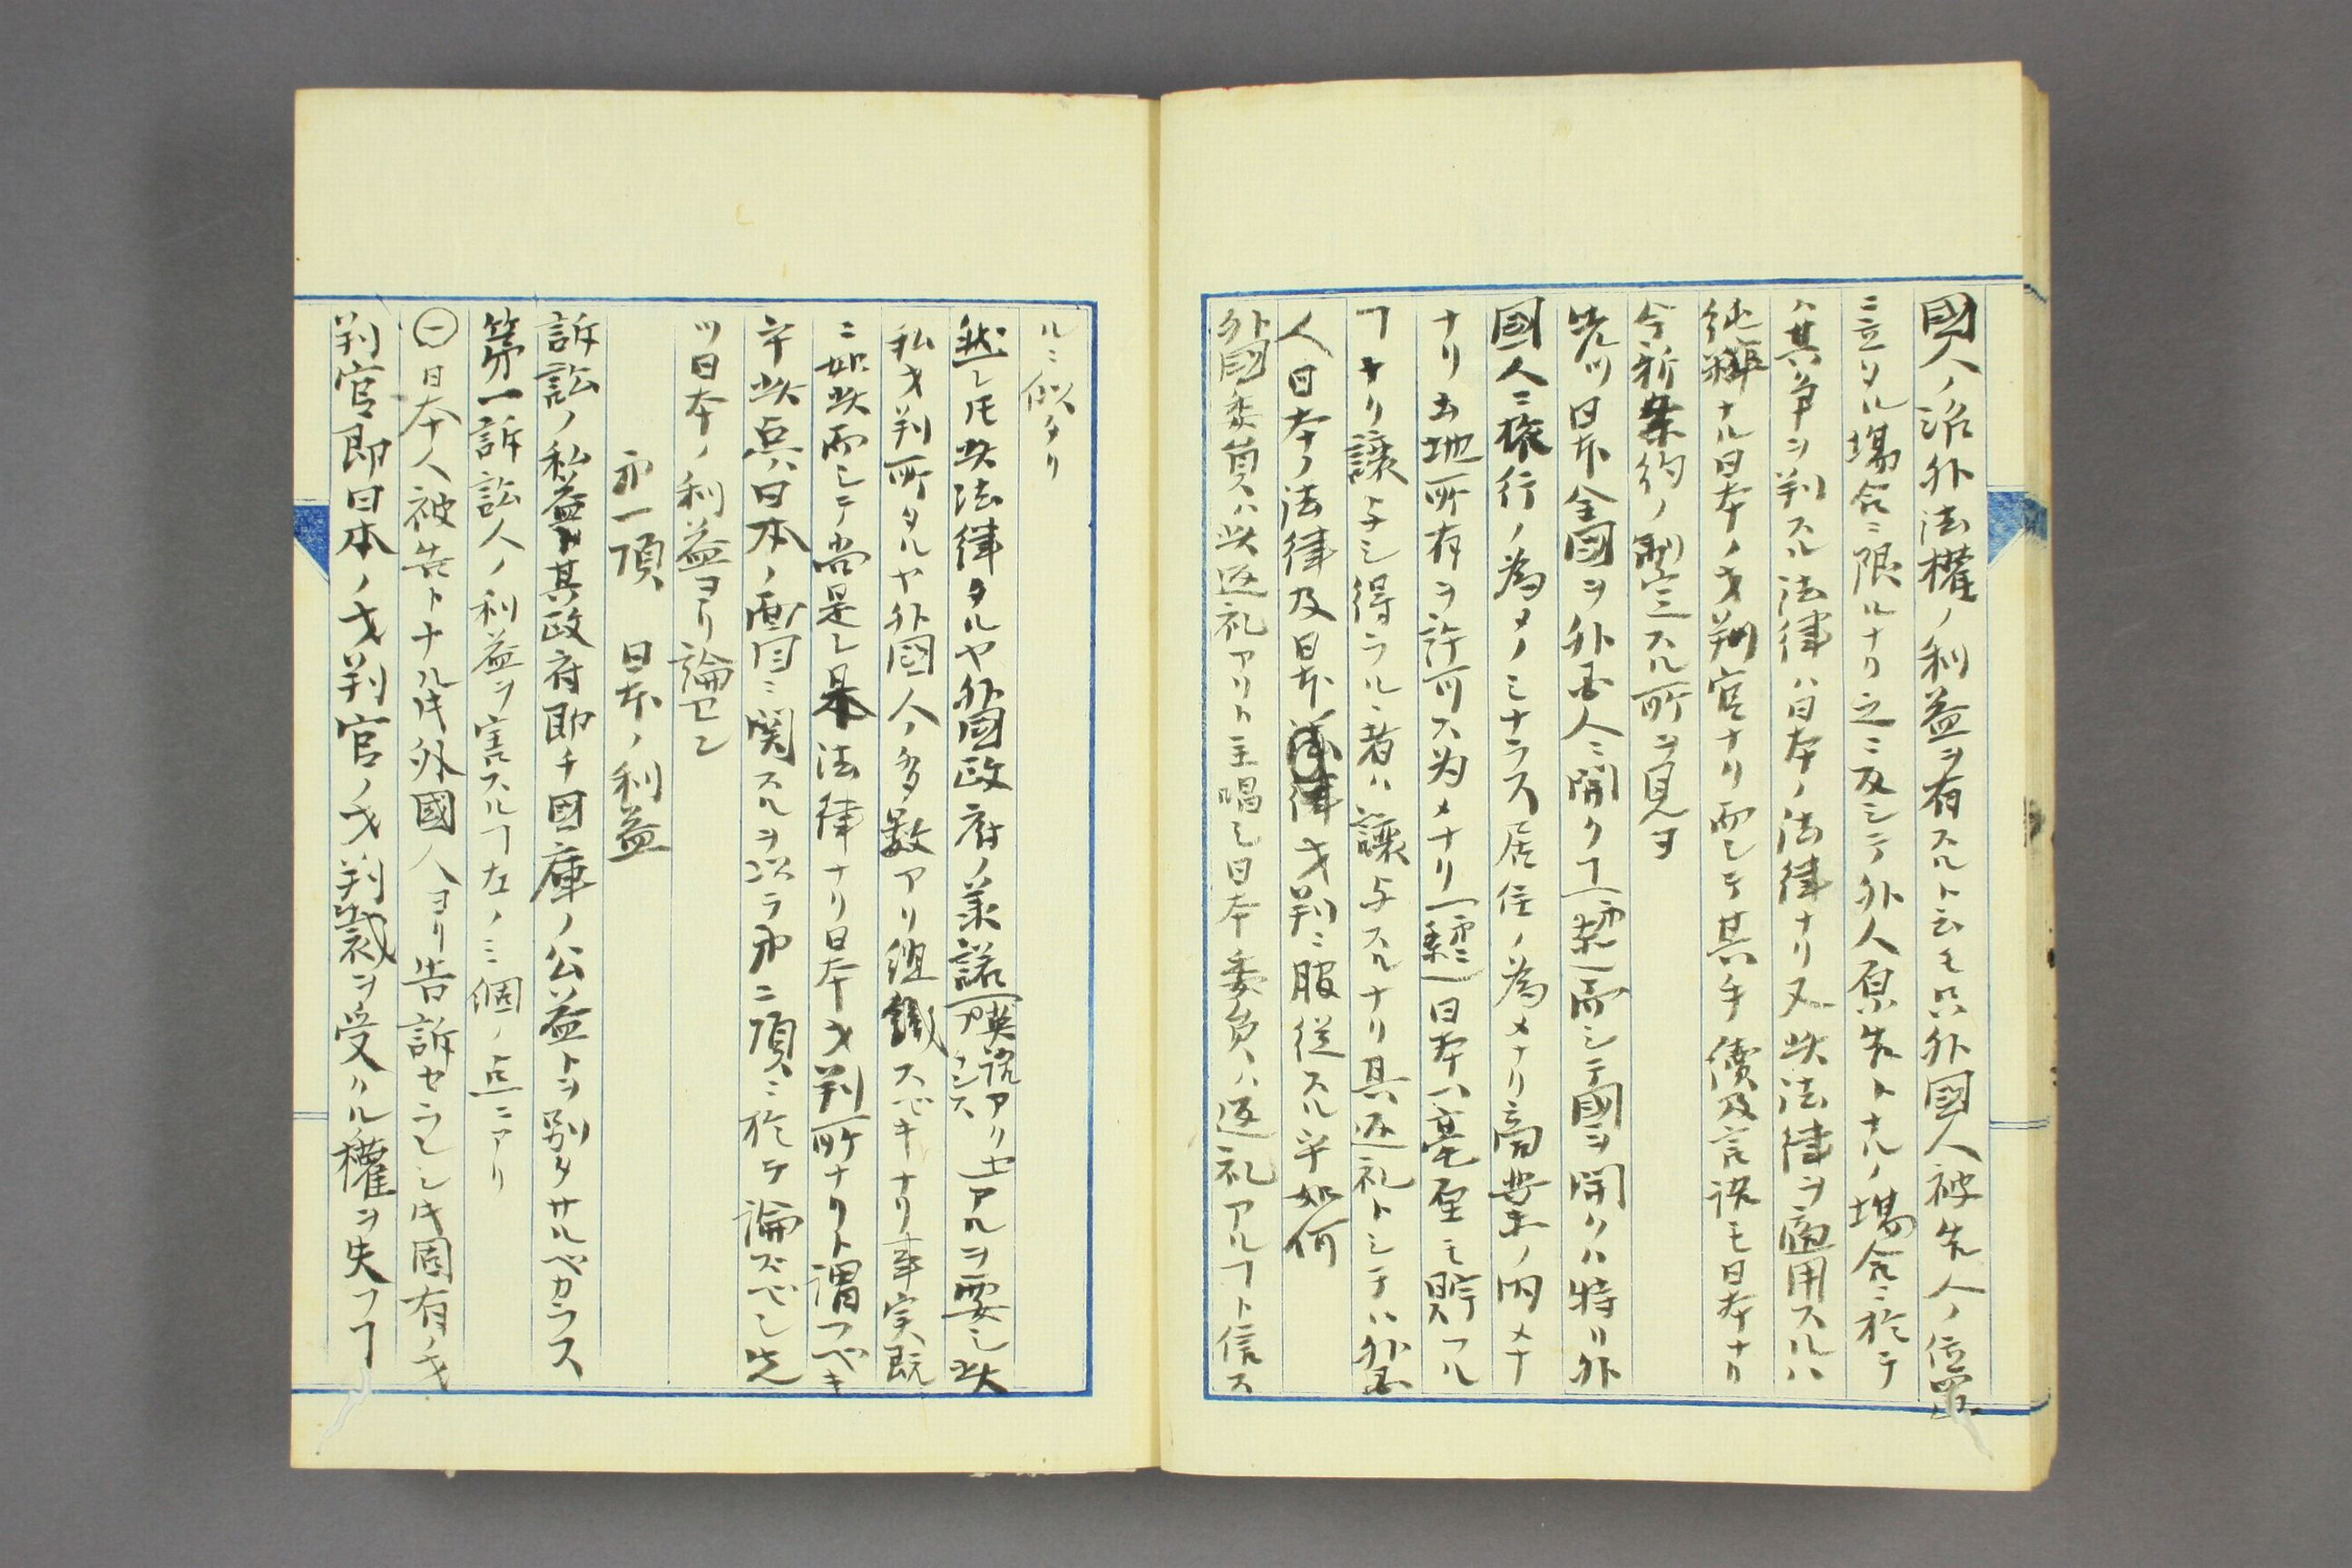 國人ノ治外法權ノ利益ヲ有スルト云モ只外國人被告人ノ位置
ニ立タル場合ニ限ルナリ之ニ反シテ外人原告トナルノ場合ニ於テ
ハ其争ヲ判スル法律ハ日本ノ法律ナリ又此法律ヲ適用スルハ
純粹ナル日本ノ才判官ナリ而シテ其手續及言語モ日本ナリ
今新条約ノ制定スル所ヲ見ヨ
先ツ日本全國ヲ外国人ニ開クヿ一而シテ國ヲ開クハ特リ外
國人ニ旅行ノ為メノミナラス居住ノ為メナリ商業ノ為メナ
ナリ土地所有ヲ許可ス為メナリ日本ハ毫厘モ貯フル
ヿナク讓与シ得ラルヽ者ハ讓与スルナリ其返礼トシテハ外国
人日本ノ法律及日本才判ニ服従スル乎如何
外國委員ハ此返礼アリト主唱シ日本委員ハ返礼アルヿト信ス
ルニ似タリ
然レ𪜈此法律タルヤ外國政府ノ承諾英訳アリヲ要シ此
私才判所タルヤ外國人ノ多数アリ組織スベキナリ事実既
ニ如此而シテ尚是レ日本法律ナリ日本才判所ナリト謂フベキ
乎此点ハ日本ノ面目ニ関スルヲ以テ第二項ニ於テ論ズベシ先
ツ日本ノ利益ヨリ論セン
第一項　日本ノ利益
訴訟ノ私益ト其政府即チ国庫ノ公益トヲ別タサルベカラス
第一訴訟人ノ利益ヲ害スルヿ左ノ三個ノ点ニアリ
㊀日本人被告トナル𪜈外國人ヨリ告訴セラレシ𪜈固有ノ才
判官即日本ノ才判官ノ才判裁ヲ受クル權ヲ失フヿ